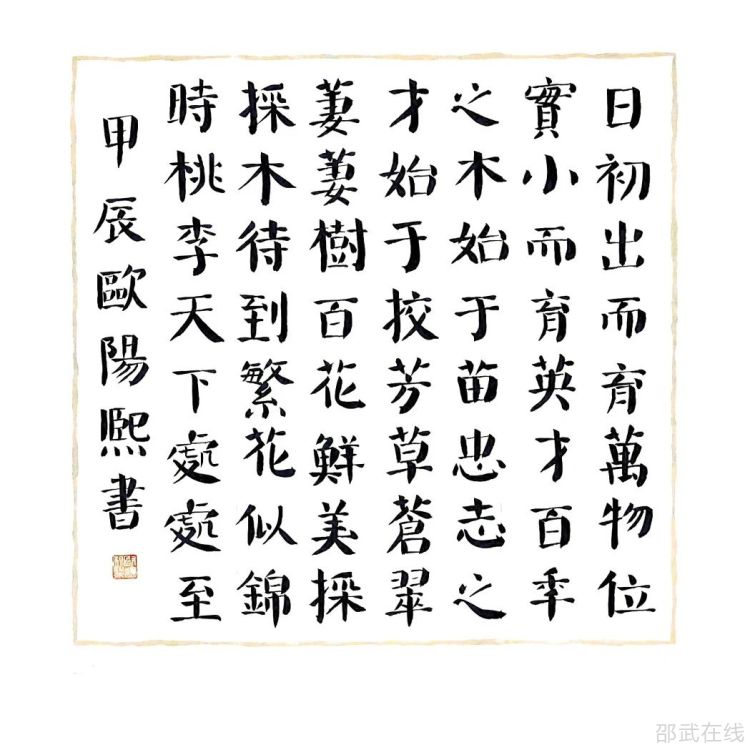 日初出而育萬物位
實小而育英才百年
之木始于苗忠志之
才始于挍芳草蒼翠
萋萋樹百花鮮美採
採木待到繁花似錦
時桃李天下處處至
甲辰歐陽熙書
邵武在线